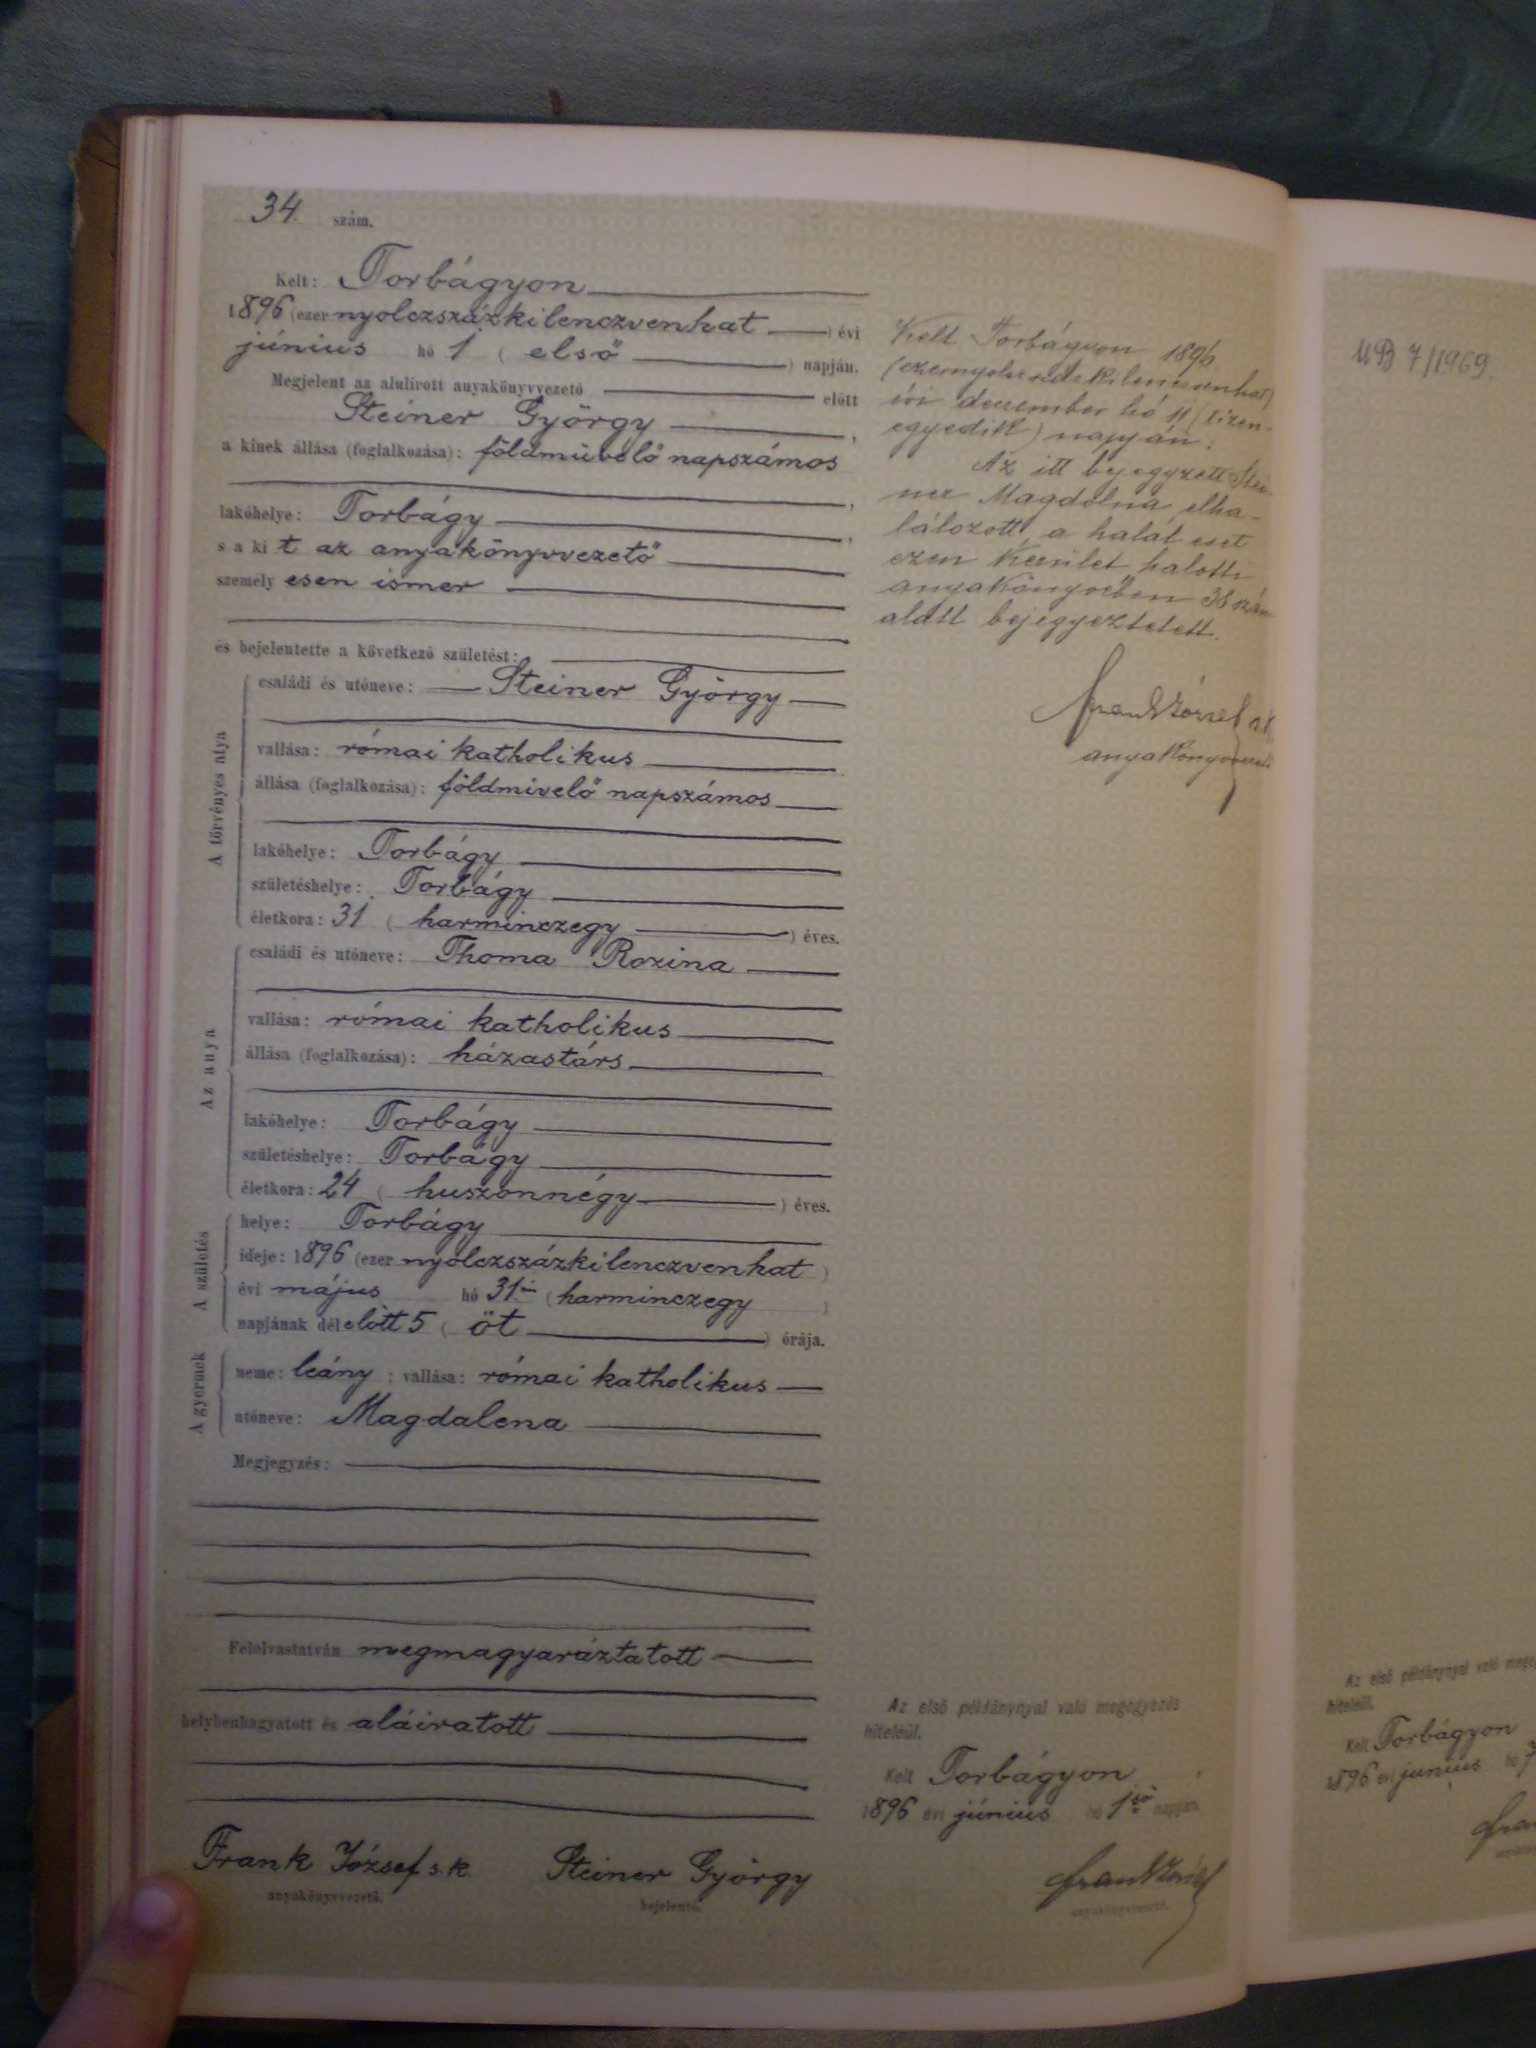 34. szám.
Kelt: Torbágyon
1896 (ezer nyolczszázkilenczvenhat) évi
június hó 1 (első) napján.
Megjelent az alulirott anyakönyvvezető előtt
Steiner György,
a kinek állása (foglalkozása): földmüvelő napszámos,
lakóhelye: Torbágy,
s a kit az anyakönyvvezető
személyesen ismer
és bejelentette a következő születést:
A törvényes atya
családi és utóneve: Steiner György
vallása: római katholikus
állása (foglalkozása): földmivelő napszámos
lakóhelye: Torbágy
születéshelye: Torbágy
életkora: 31 (harminczegy) éves.
Az anya
családi és utóneve: Thoma Rozina
vallása: római katholikus
állása (foglalkozása): házastárs
lakóhelye: Torbágy
születéshelye: Torbágy
életkora: 24 (huszonnégy) éves.
A születés
helye: Torbágy
ideje: 1896 (ezer nyolczszázkilenczvenhat)
évi május hó 31 (harminczegy)
napjának délelőtt 5 (öt) órája.
A gyermek
neme: leány; vallása: római katholikus
utóneve: Magdalena
Megjegyzés:
Felolvastatván megmagyaráztatott
helybenhagyatott és aláiratott
Frank József s. k. Steiner György
anyakönyvvezető. bejelentő.
Kelt Torbágyon 1896.
(ezernyolczszázkilenczvenhat)
évi deczember hó 11 (tizen-
egyedik) napján:
Az itt bejegyzett Stei-
ner Magdolna elha-
lálozott, a halál eset
ezen kerület halotti
anyakönyvében 38 szám
alatt bejegyeztetett.
Frank József s.k.
anyakönyvvezető
Az első példánynyal való megegyezés
hiteléül.
Kelt Torbágyon
1896 évi június hó 1ső napján.
Frank József
anyakönyvvezető.
MB 7/1969.
Az első példánynyal való
hiteléül.
Kelt Torbágyon
1896 évi június hó